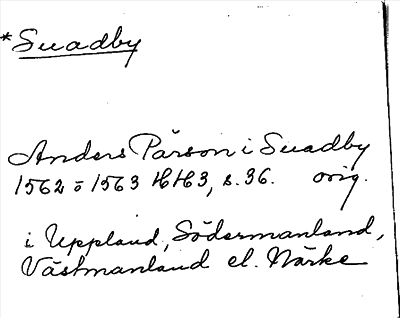 *Suadby
Anders Pärson i Suadby
1562 o 1563 HH3, s. 36. orig.
i Uppland, Södermanland,
Västmanland el. Närke